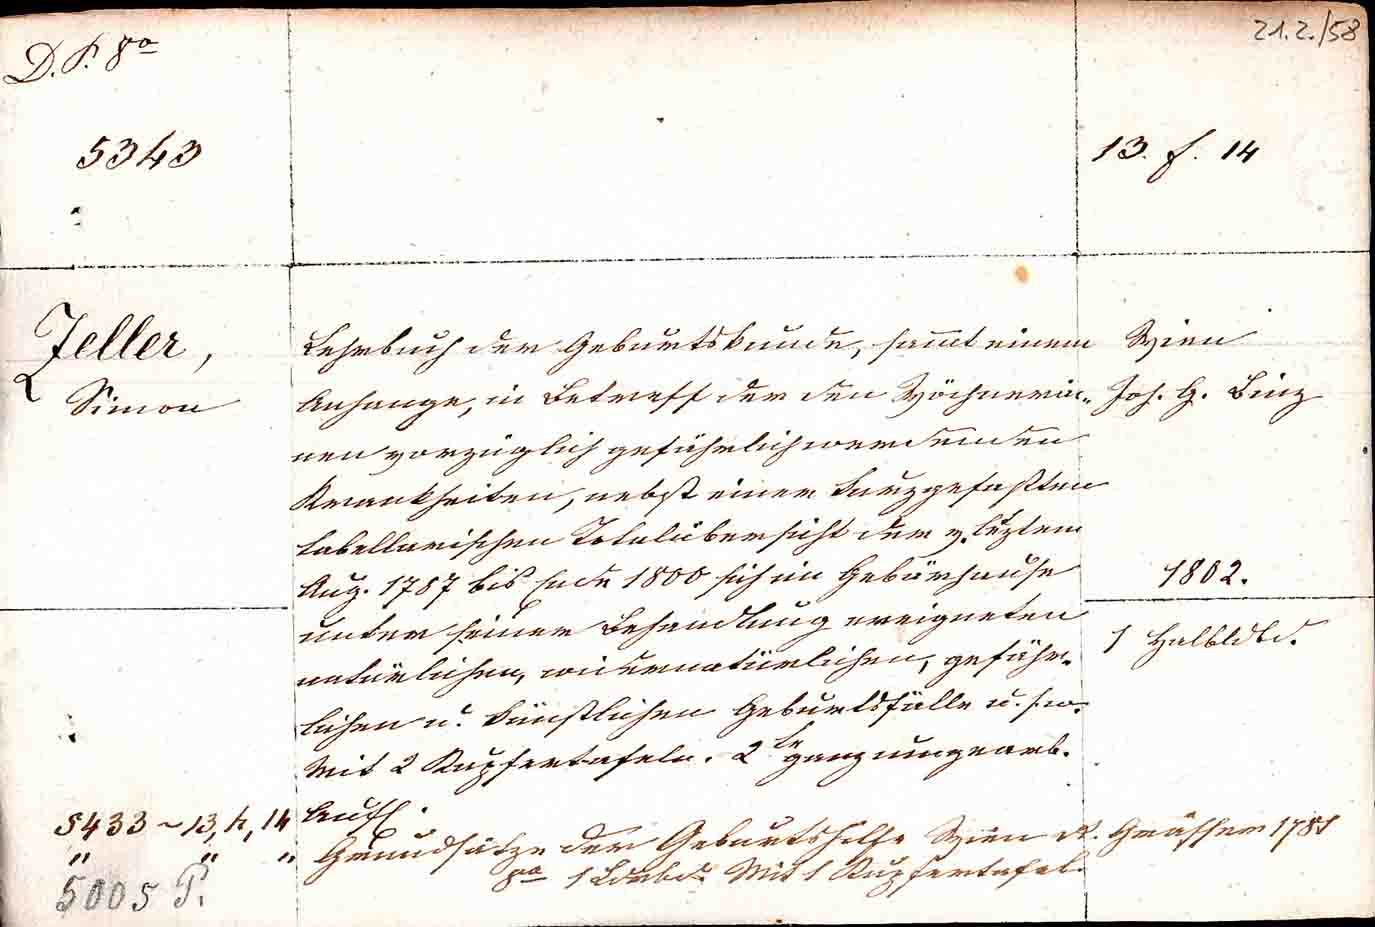 D. P. 8º
21.2./58
5343
13. f. 14
Zeller,
Simon
Lehrbuch der Geburtskunde, sammt einem
Anhange, in Betreff der den Wöchnerin„
nen vorzüglich gefährlichwerdenden
Krankheiten, nebst einer kurzgefaßten
tabellarischen Totalübersicht der v. lezten
Aug. 1787 bis Ende 1800 sich im Gebärhause
unter seiner Behandlung ereigneten
natürlichen, widernatürlichen, gefähr„
lichen u. künstlichen Geburtsfälle u. s. w.
Mit 2 Kupfertafeln. 2te ganz umgearb.
Aufl.
Wien
Jos. G. Binz
1802.
1 Halbldbd.
5433 ~ 13, h, 14
Grundsätze der Geburtshilfe Wien R. Gräffer 1781
„ „ „
8º 1 Ldrbd. Mit 1 Kupfertafel.
5005 P.